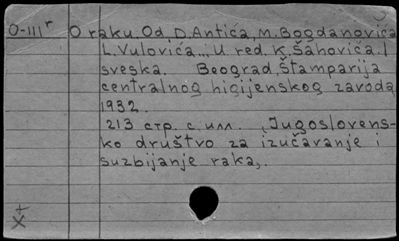 O-IIIr O raku. Od D. Antića, M. Bogdanovića
L. Vulovića... U red. K. Šahovića. I
sveska. Beograd, Štamparija
centralnog higijenskog zavoda
1932.
213 стр. с илл. (Jugoslovens-
ko društvo za izučavanje i
suzbijanje raka).